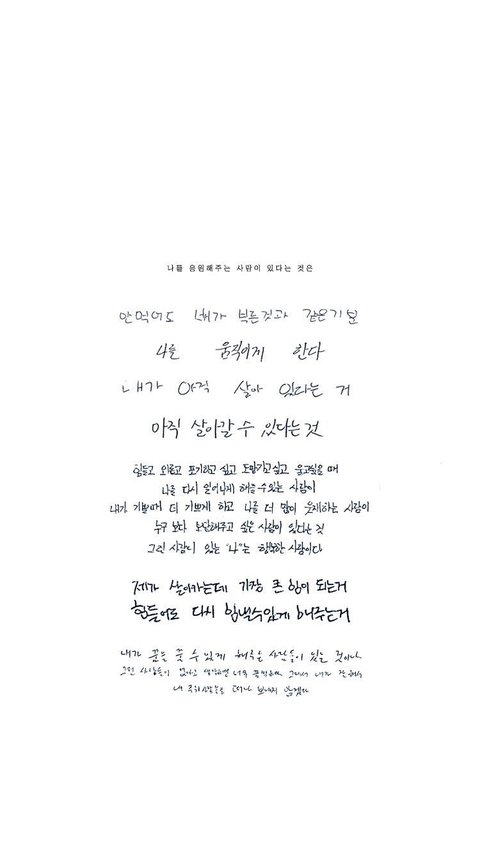 나를 응원해주는 사람이 있다는 것은
안 먹어도 배가 부른것과 같은기분
나를 움직이게 한다
내가 아직 살아 있다는 거
아직 살아갈 수 있다는 것
힘들고 외롭고 포기하고 싶고 도망가고싶고 울고싶을 때
나를 다시 일어나게 해줄 수 있는 사람이
내가 기쁠때 더 기쁘게 하고 나를 더 많이 웃게하는 사람이
누구 보다 보답해주고 싶은 사람이 있다는 것
그런 사람이 있는 "나"는 행복한 사람이다
제가 살아가는데 가장 큰 힘이 되는거
힘들어도 다시 힘낼수있게 해주는거
내가 꿈을 꿀 수 있게 해주는 사람들이 있는 것이다
그런 사람들이 없다고 생각하면 너무 그래서 내가 잘해서
내 떠나 보내지 않겠다